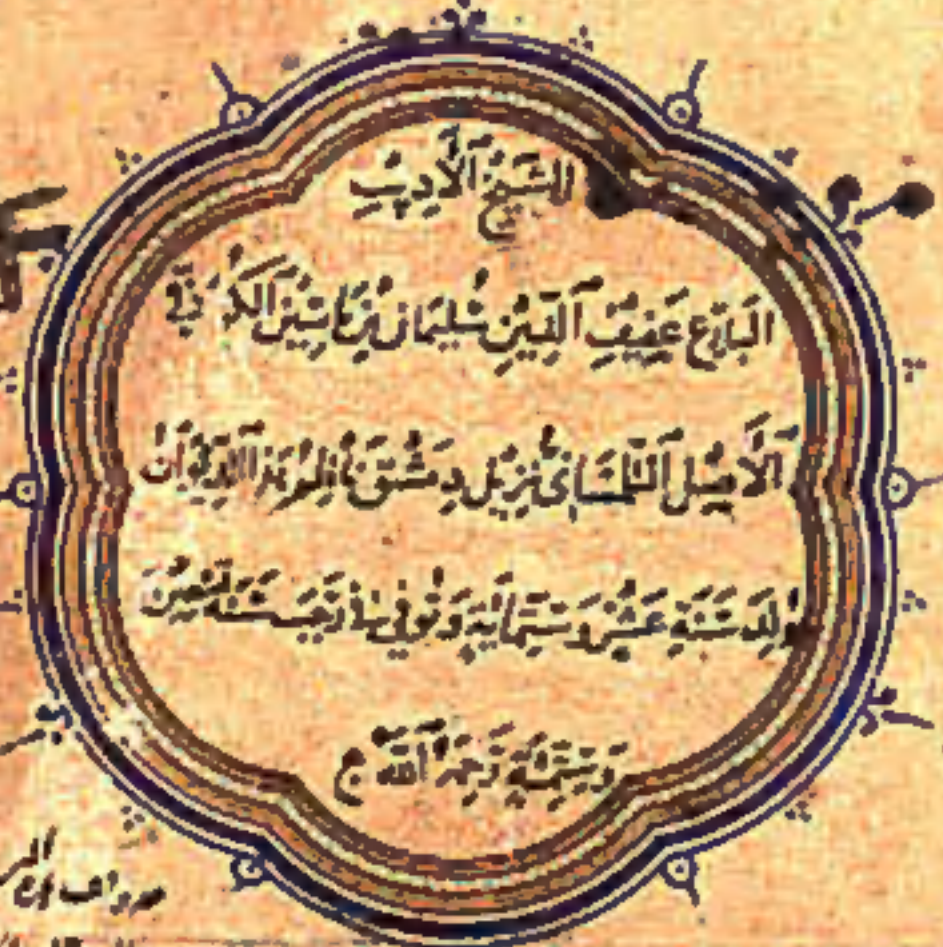 الشَّيْخِ الأَدِيبِ
البَارِعِ عَفِيفِ الدِّينِ سُلَيْمَانَ بْنِ يَاسِين الكُوفِيّ
الأَصْلِ التِّلْمِسَانِيِّ نَزِيلِ دِمَشْقَ نَاظِم هَذَا الدِّيوَان
وُلِدَ سَنَةَ عَشْرٍ وَسِتِّمِائَةٍ وَتُوُفِّيَ رَجَب سَنَة تِسْعِينَ
وَسِتِّمِائَةٍ رَحِمَهُ اللَّهُ